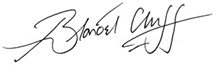 Blondel Cluff